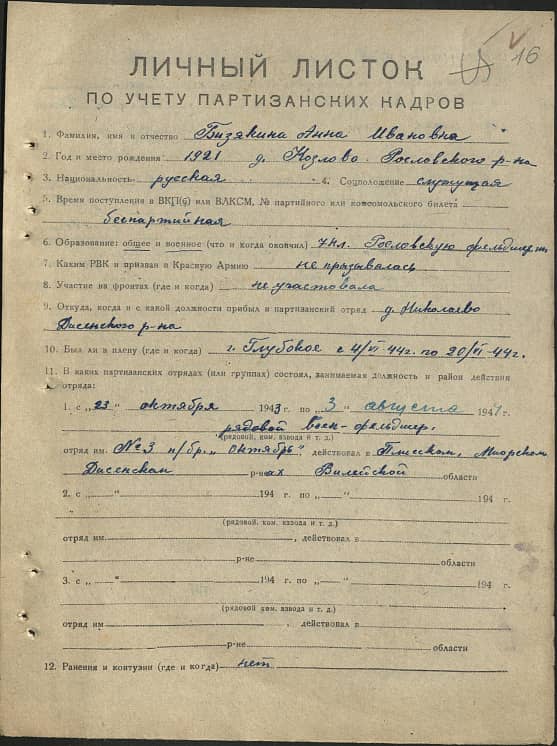 16
ЛИЧНЫЙ ЛИСТОК
ПО УЧЕТУ ПАРТИЗАНСКИХ КАДРОВ
1. Фамилия, имя и отчество Бизякина Анна Ивановна
2. Год и место рождения 1921 д. Козлово Рославского р-на
3. Национальность русская 4. Соцположение служущая
5. Время поступления в ВКП(б) или ВЛКСМ, № партийного или комсомольского билета
беспартийная
6. Образование: общее и военное (что и когда окончил) 7 кл. Рославскую фельдшер.
7. Каким РВК и призван в Красную Армию не призывалась
8. Участие на фронтах (где и когда) не участовала
9. Откуда, когда и с какой должности прибыл в партизанский отряд д. Николаево
Дисенского р-на
10. Был ли в плену (где и когда) г. Глубокое с 4/VI 44г. по 20/VI-44г.
11. В каких партизанских отрядах (или группах) состоял, занимаемая должность и район действия
отряда:
1. с „23" октября 1943 г. по „3" августа 1944 г.
рядовой воен-фельдшер.
(рядовой, ком. взвода и т. д.)
отряд им. № 3 п/бр. „Октябрь" действовал в Плисском, Миорском
Дисенском р-нах Вилейской области
2. с „ " 194 г. по „ " 194 г.
(рядовой, ком. взвода и т. д.)
отряд им , действовал в
р-не области
3. с „ " 194 г. по „ " 194 г.
(рядовой, ком. взвода и т. д.)
отряд им , действовал в
р-не области
12. Ранения и контузии (где и когда) нет